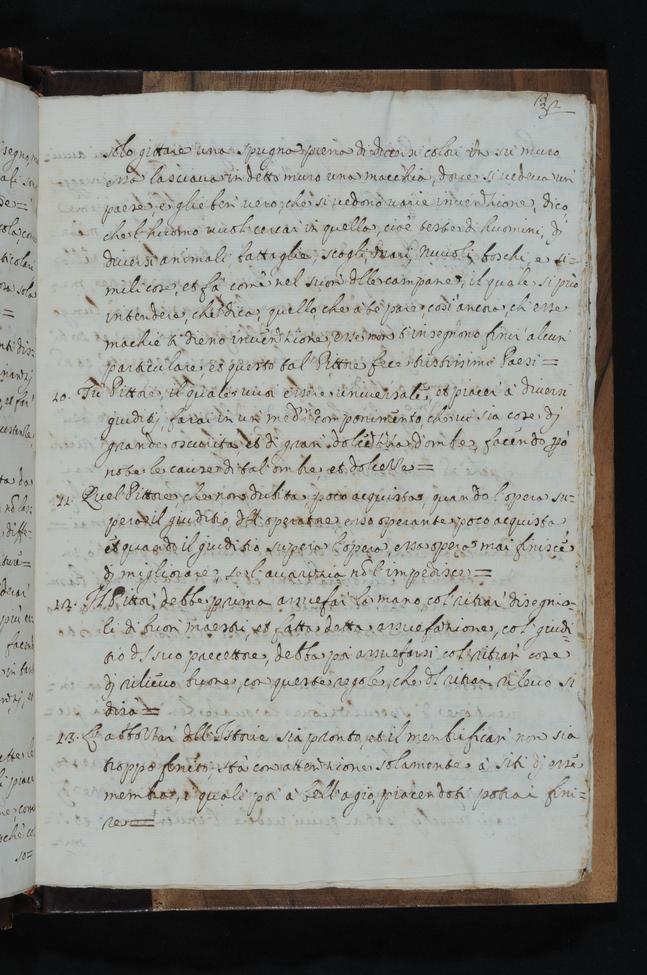 32
solo gittare una spugna piena di diversi colori in su muro
essa lasciava in detto muro una macchia, dove si vedeva un
paese e gli è ben vero, che si vedono varie invenzione, dico
che l'huomo vuol cercar in quella, cioè teste di huomini,
diversi animali battaglie, scogli, mari, nuvoli, boschi, e si=
mili cose, et fà come nel suon delle campane, il quale si può
intendere, che dica, quello che a te pare, così ancora, ch'esse
machie ti dieno invenzione, esse non t'insegnono finir alcun
particulare, et questo tal Pittore fece tristissimi Paesi=
10. Tu Pittore, il quale vuoi essere universale, et piacer à diversi
giuditij farai in un med.º componimento, che vi sia cose di
grande oscurità, et di gran dolcezza d'ombre, facendo pò
note le cause di tal ombre et dolcezze=
11. Quel Pittore, che non dubita, poco acquista quando l'opera su=
pera il giuditio dell operatore esso operante poco acquista
et quando il giuditio supera l'opera, essa opera mai finisce
di migliorare, se l'avarizia nõ l'impedisce=
12. Il Pittor debbe prima assuefar la mano col ritrar disegni
di buon maestri, et fatta detta assuefazione, col giudi=
tio del suo precettore, debba poi assuefarsi col ritrar cose
di rilievo buone, con queste regole, che del ritrar rilievo si
dirà=
13. Il abbozzar delle Istorie sia pronto, et il membrificar non sia
troppo finito, stà con attenzione solamente à siti di esse
membra, i quali poi à bell'agio, piacendoti potrai fini=
re=